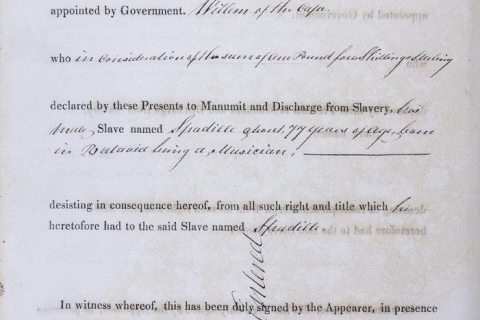 appointed by Government. Willem of the Cape
who in consideration of the sum of one Pound four Shillings sterling
declared by these Presents to Manumit and Discharge from Slavery, his
male Slave named Spadille about 77 years of age, born
in Batavia being a Musician,
desisting in consequence hereof, from all such right and title which he
heretofore had to the said Slave named Spadille
Entered
In witness whereof, this has been duly signed by the Appearer, in presence